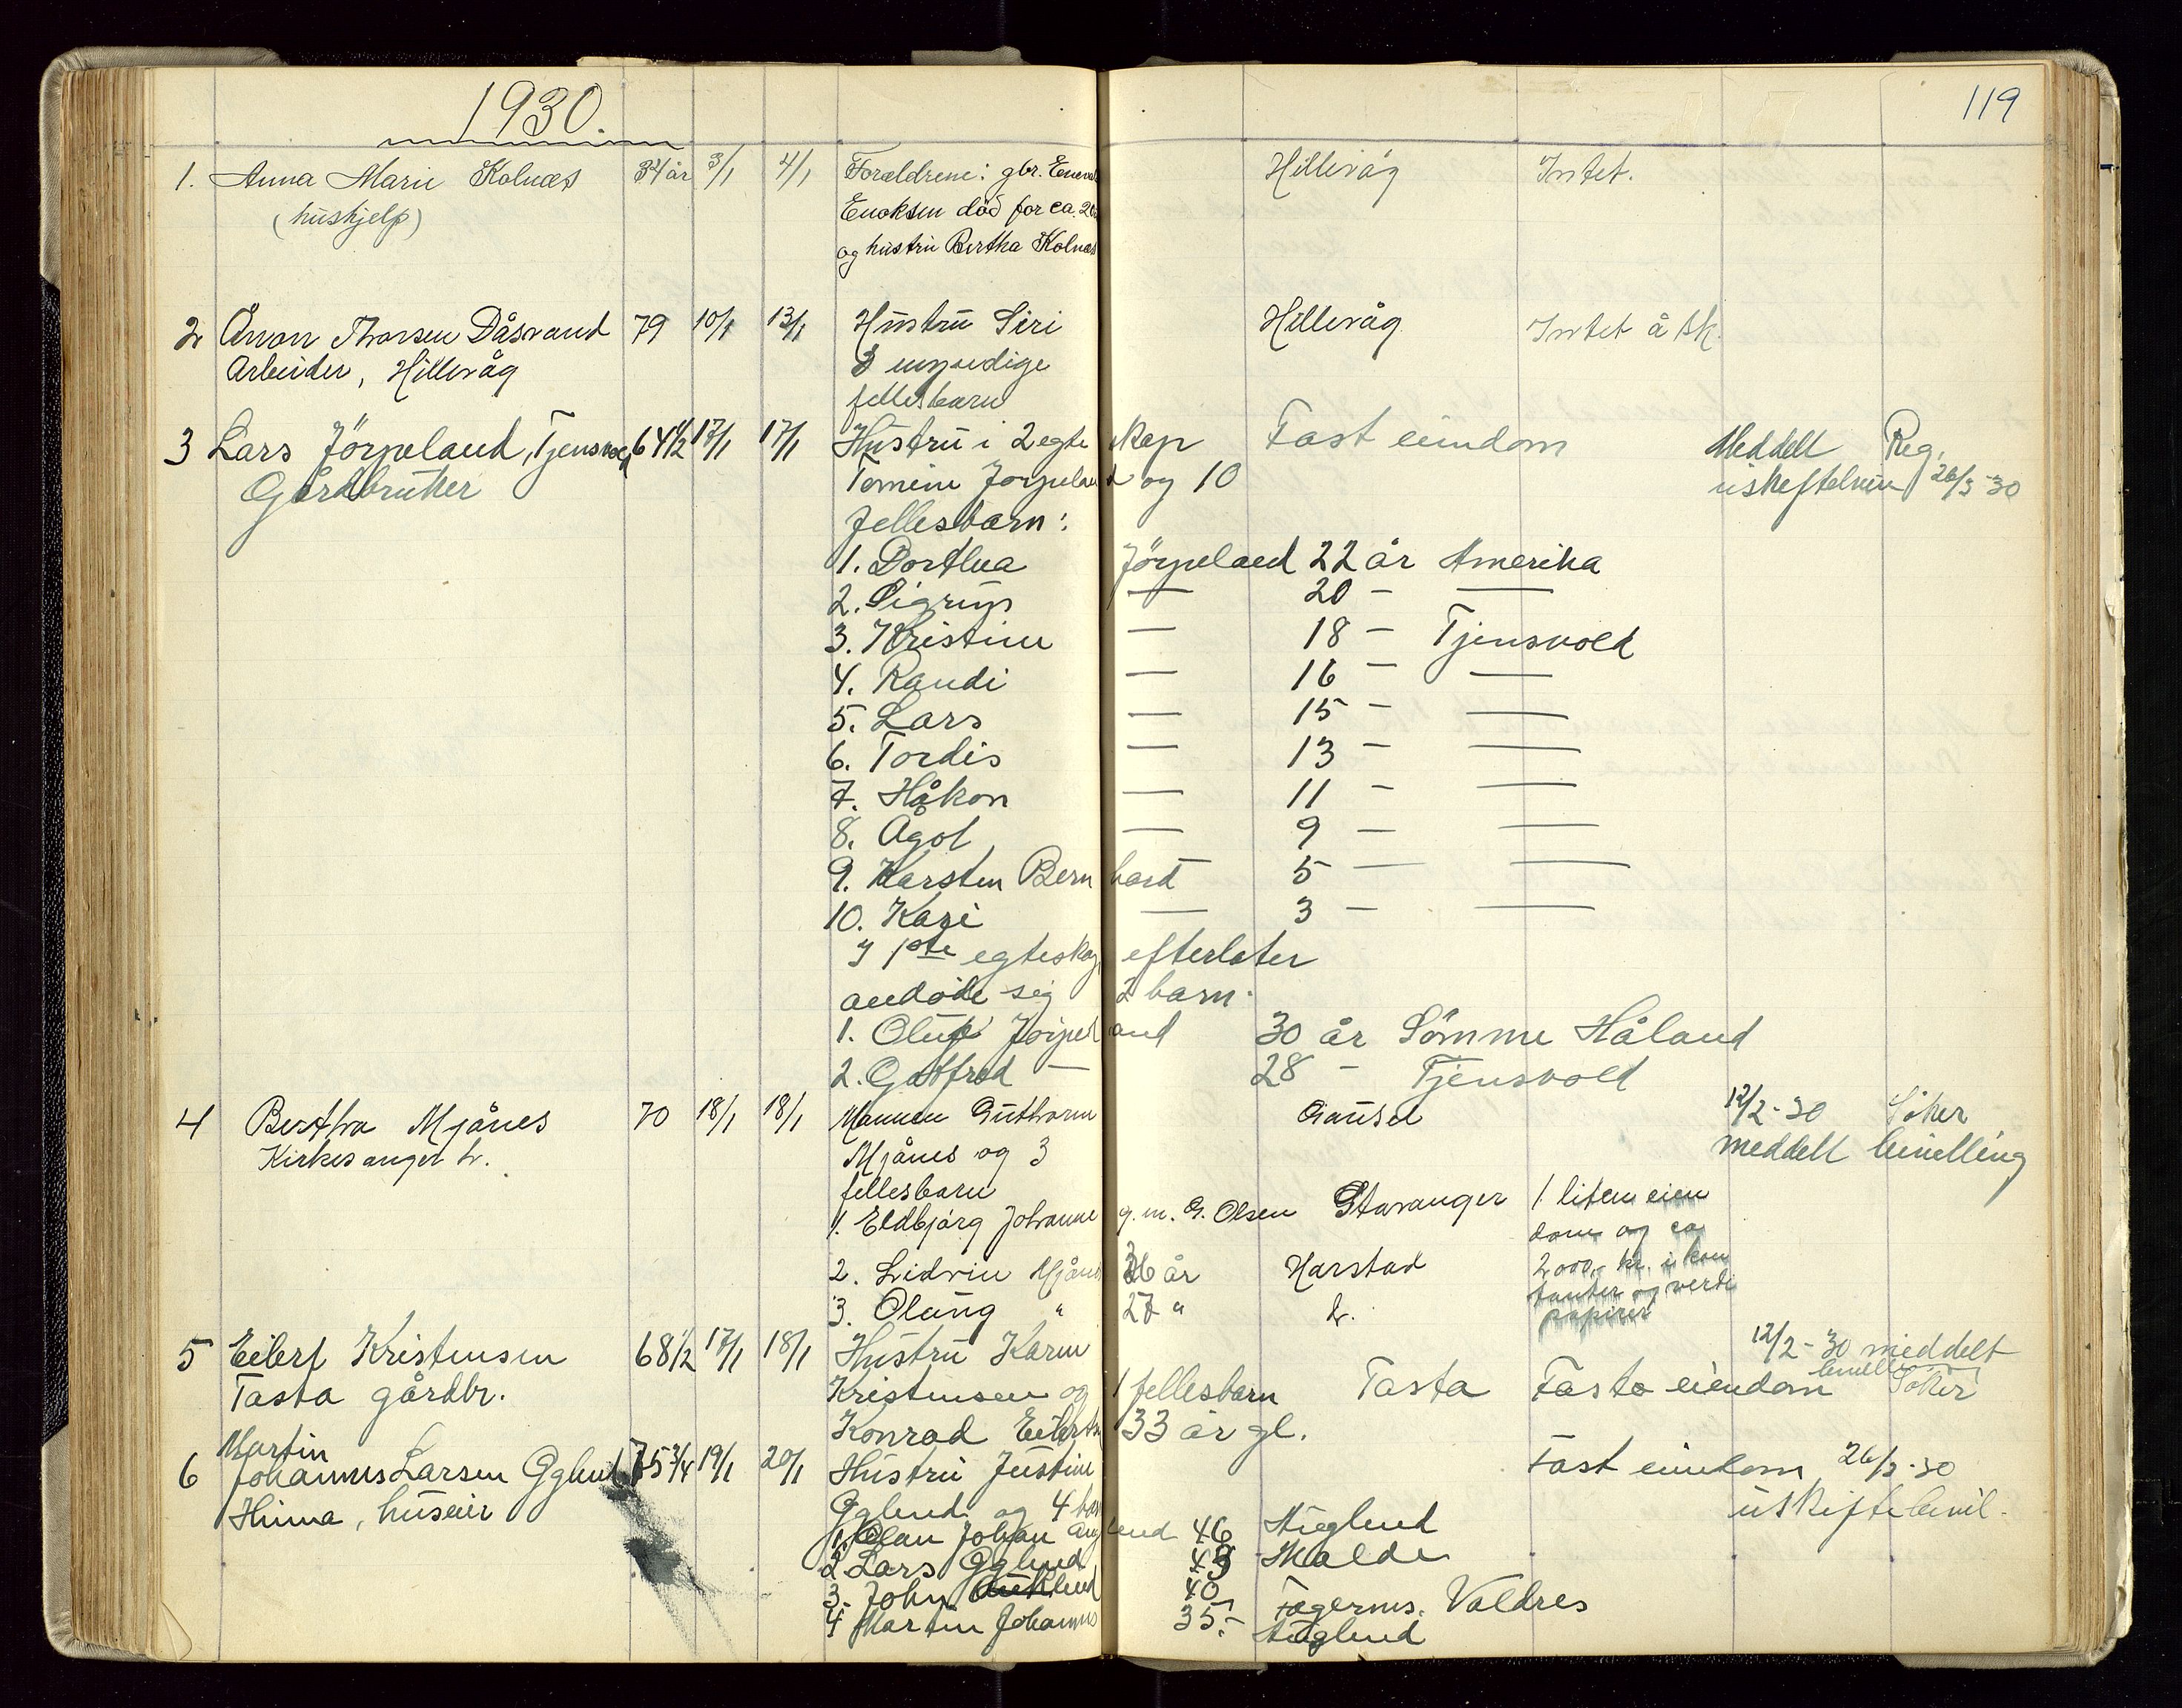 1930.
119
1. Anna Marie Kolnæs 34 år 3/1 4/1 Forældrene: gbr. Hillevåg Intet.
(hushjelp) Enoksen död for ca. 20
og hustru Bertha Kolnæs
2 Thorsen Dåsvand 79 10/1 13/1 Hustru Siri Hillevåg Intet å sk.
Arbeider, Hillevåg 3 umyndige
fellesbarn
3 Lars Jörpeland, Tjensvold 64 1/2 17/1 17/1 Hustru i 2 egteskap Fast eiendom Meddelt Reg.
Gårdbruker Tomine Jorpeland og 10 uskiftebevil 26/3-30
fellesbarn:
1. Dorthea Jörpeland 22 år Amerika
2. Sigrun — 20 — —
3. Kristine — 18 — Tjensvold
4. Randi — 16 — —
5. Lars — 15 — —
6. Tordis — 13 — —
7. Håkon — 11 — —
8. Ågot — 9 — —
9. Karsten Bernhard 5 — —
10. Kari — 3 — —
I 1ste egteskap efterlater
avdöde sig 2 barn.
1. Oluf Jörpeland 30 år Sömme Håland
2. Gotfred — 28 — Tjensvold
4 Bertha Mjånes 70 18/1 18/1 Mannen Guthorm Gausel 12/2-30 Söker
Kirkesanger h. Mjånes og 3 meddelt bevilling
fellesbarn
1. Eldbjörg Johanne g. m. G. Olsen Stavanger 1 liten eien
dom og ca
2. Lidvin Mjånes 36 år Harstad 2000,- kr. i kon
3. Olaug " 27 " h. tanter og verdi
papirer
5 Eilert Kristensen 68 1/2 17/1 18/1 Hustru Karen 12/2-30 meddelt
Tasta gårdbr. Kristensen og 1 fellesbarn Tasta Fast eiendom bevill Söker
Konrad Eilertsen 33 år gl.
Martin
6 Johannes Larsen Ogglend 75 3/4 19/1 20/1 Hustru Justine Fast eiendom 26/3-30
Hinna, huseier Ogglend og 4 barn uskiftebevil.
1. Olau Johan Augland 46 Auglend
2 Lars Ogglend 43 Malde
3. John Auklend 40 Fagernes. Valdres
4 Martin Johannes 35.- Auglend